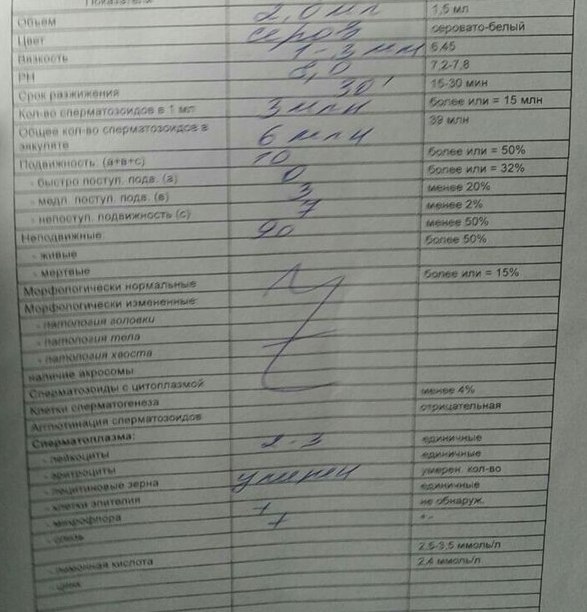 Показатели
Объем 2,0 мл 1,5 мл
Цвет сероватo-белый
Вязкость 1-3 мм 6,45
PH 8,0 7,2-7,8
Срок разжижения 30' 15-30 мин
Кол-во сперматозоидов в 1 мл 3 млн более или = 15 млн
Общее кол-во сперматозоидов в 6 млн 39 млн
эякуляте
Подвижность (а+в+с) 10 более или = 50%
- быстро поступ. подв. (а) 0 более или = 32%
- медл. поступ. подв. (в) 3 менее 20%
- непоступ. подвижность (с) 7 менее 2%
Неподвижные: 90 менее 50%
- живые более 50%
- мертвые
Морфологически нормальные более или = 15%
Морфологически измененные:
- патология головки
- патология тела
- патология хвоста
наличие акросомы
Сперматозоиды с цитоплазмой
Клетки сперматогенеза менее 4%
Агглютинация сперматозоидов отрицательная
Сперматоплазма:
- лейкоциты 2-3 единичные
- эритроциты единичные
- лецитиновые зерна умерен умерен. кол-во
- клетки эпителия единичные
- микрофлора + не обнаруж.
- слизь + + -
2,5-3,5 ммоль/л
- лимонная кислота 2,4 ммоль/л
- цинк